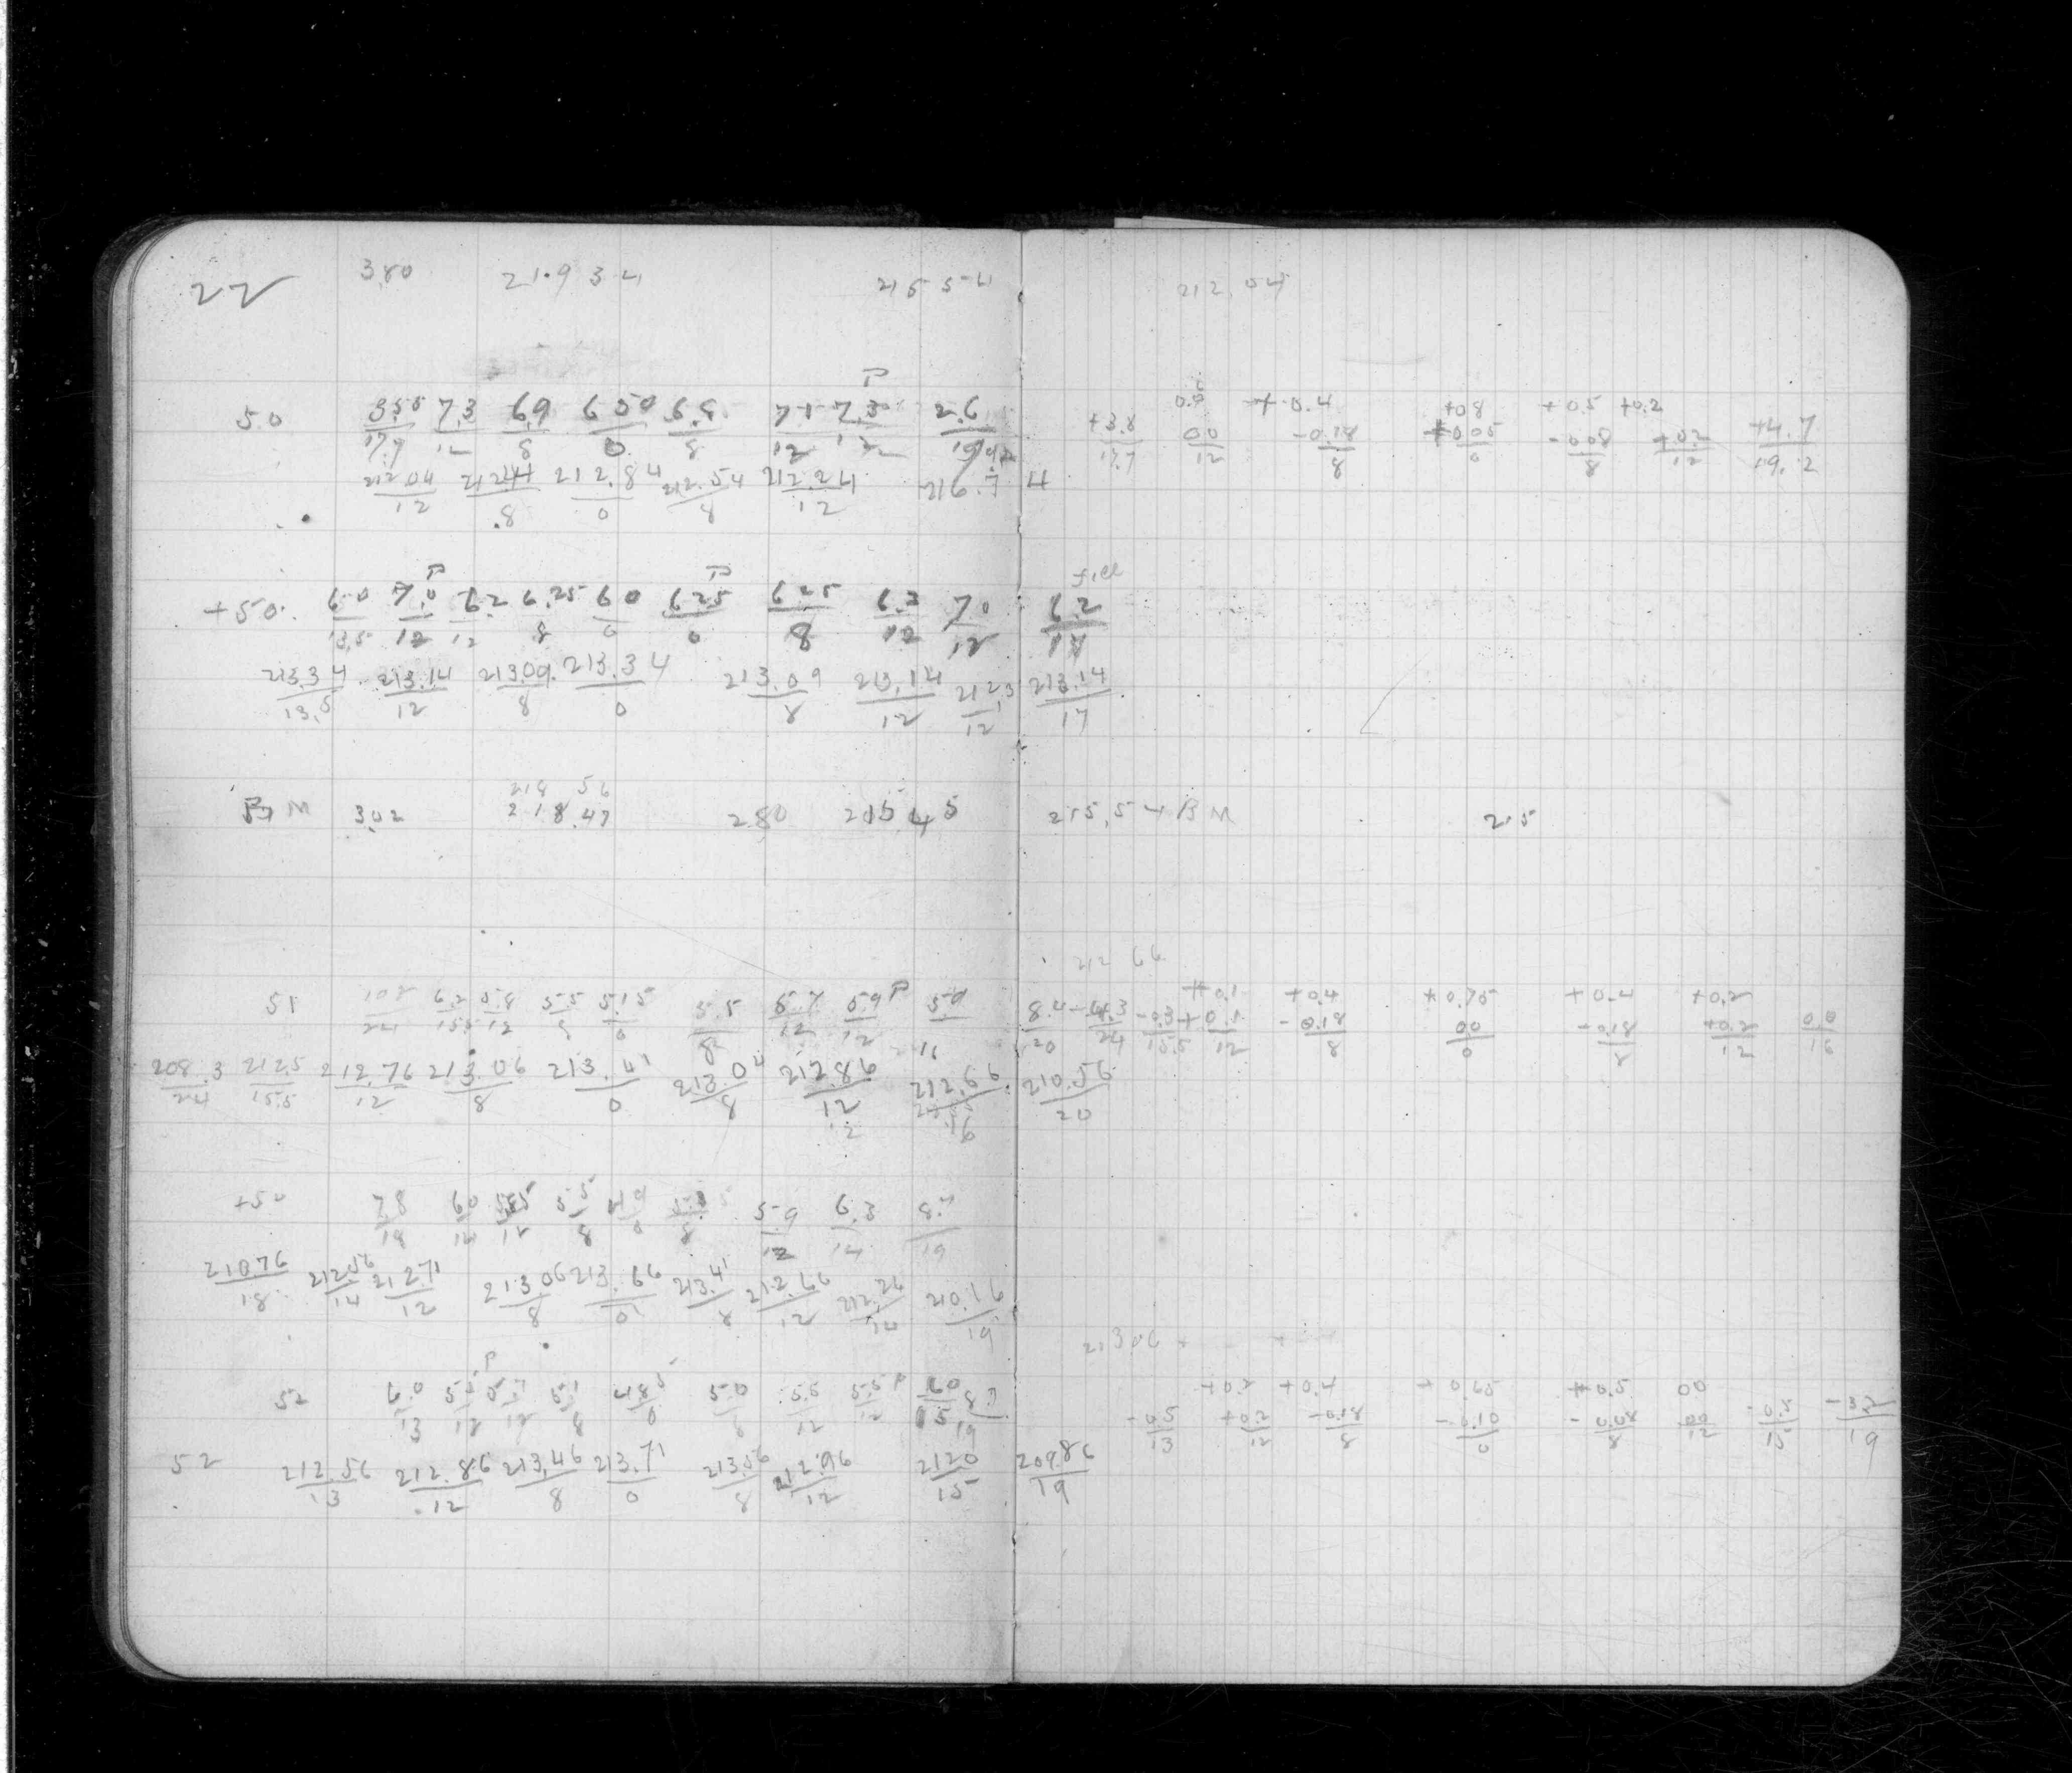 22 3.80 219 34 215 54 212.04
P
50 3.55/17.7 7.3/12 6.9/8 6.50/0 6.8/8 7.1/12 7.3/12 2.6/19.2 +3.8/17.7 0.0 00/12 +0.4 -0.18/8 +0.8 +0.05/0 +0.5 -0.08/8 +0.2 +0.2/12 +4.7/19.2
212.04/12 212.44/8 212.84/0 212.54/8 212.24/12 216.74
P P
+50. 6.0/13.5 7.0/12 6.2/12 6.25/8 6.0/0 6.25/0 6.25/8 6.2/12 7.0/12 6.2/17
213.34/13.5 213.14/12 213.09/8 213.34/0 213.09/8 213.14/12 212.3/12 213.14/17
218 56
BM 3.02 218.47 2.80 215 45 215.54 BM 215
212 66
51 10.2/24 6.2/15.5 5.8/12 5.5/8 5.15/0 5.5/8 5.7/12 5.9/12 P 5.9/16 8.4/20 -4.3/24 -0.3/15.5 +0.1 +0.1/12 +0.4 -0.18/8 +0.75 00/0 +0.4 -0.18/8 +0.2 +0.2/12 0.0/16
208.3/24 212.5/15.5 212.76/12 213.06/8 213.41/0 213.04/8 212.86/12 212.66/16 210.56/20
+50 7.8/18 6.0/14 5.85/12 5.5/8 4.9/0 5.9/12 6.3/14 8.4/19
210.76/18 212.56/14 212.71/12 213.06/8 213.66/0 213.41/8 212.66/12 212.26/14 210.16/19
213.06
P
52 6.0/13 5.7/12 5.1/8 4.85/0 5.0/8 5.5/12 5.5/12 P 6.0/15 8.7/19 -0.5/13 +0.2 +0.2/12 +0.4 -0.18/8 +0.65 -0.10/0 +0.5 -0.08/8 00 00/12 -3.2/19
52 212.56/13 212.86/12 213.46/8 213.71/0 213.56/8 212.96/12 212.0/15 209.86/19